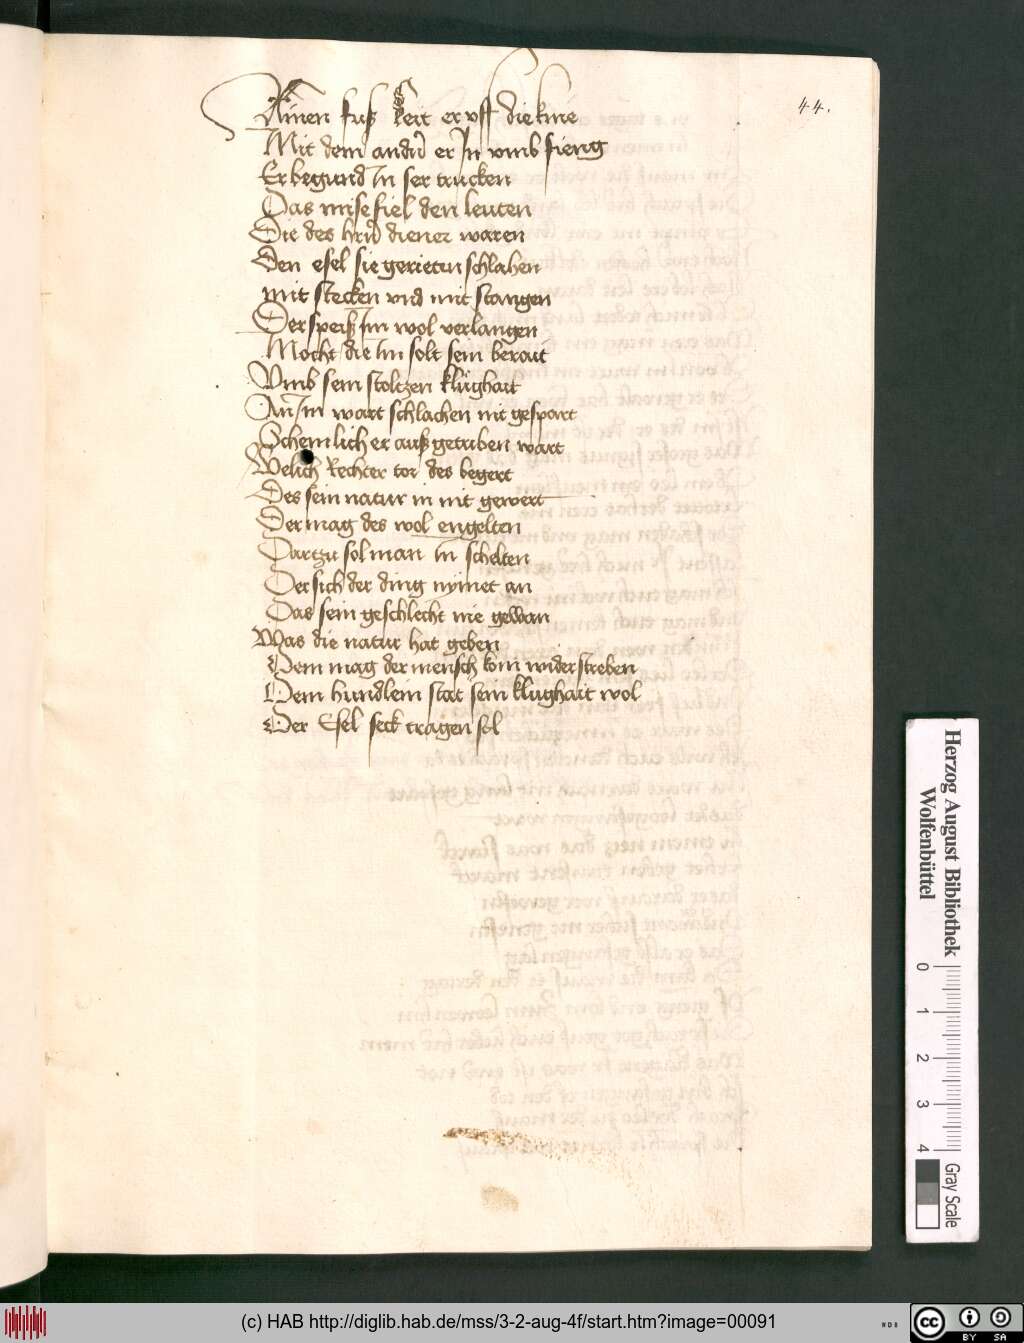 44.
Ainen fuß leit er vff die knie
Mit dem andrn er In vmb fieng
Er begund in ser trucken
Das misefiel den leuten
Die des hrn diener waren
Den esel sie gerieten schlahen
mit stecken vnd mit stangen
Der speiß Im wol verlangen
Mocht die im solt sein berait
Vmb sein stoltzen klughait
An Im wart schlachen nit gespart
Schemlich er auß getriben wart
Welich Rechter tor des begert
Des sein natur in nit gewert
Der mag des wol engelten
Dartzu sol man in schelten
Der sich der ding nymet an
Das sein geschlecht nie gewan
Was die natur hat geben
Dem mag der mensch kom widerstreben
Dem hundlein stat sein klughait wol
Der Esel seck tragen sol
Herzog August Bibliothek
Wolfenbüttel
0 1 2 3 4
Gray Scale
(c) HAB http://diglib.hab.de/mss/3-2-aug-4f/start.htm?image=00091
cc BY SA